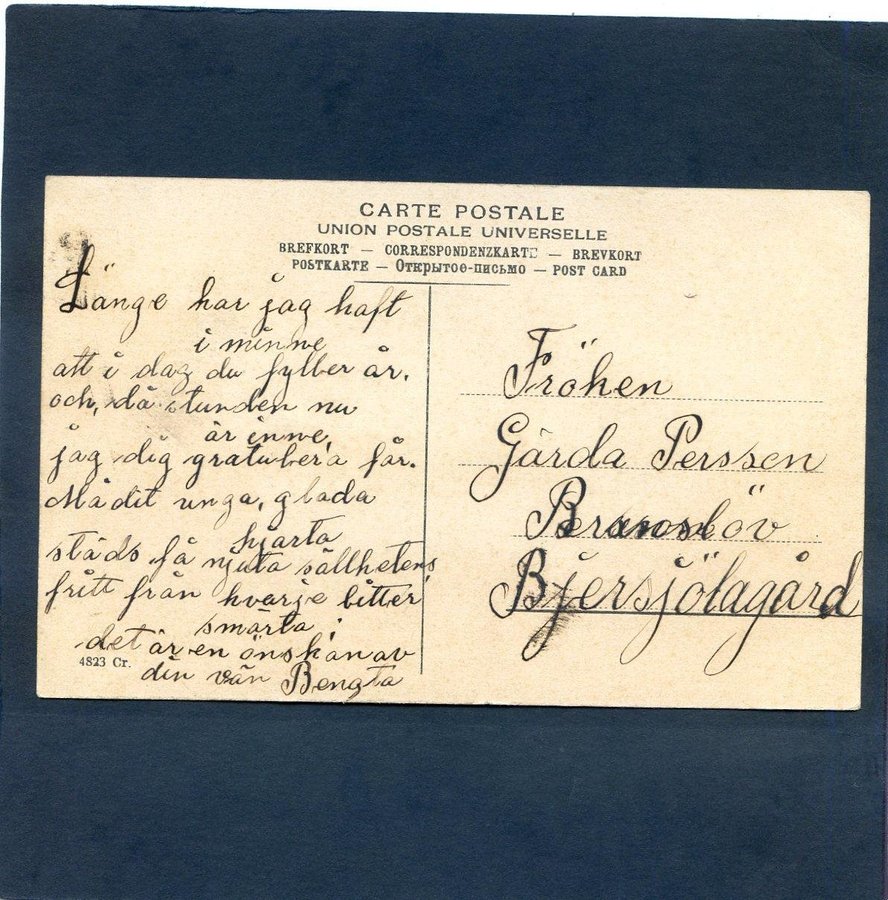 CARTE POSTALE
UNION POSTALE UNIVERSELLE
BREFKORT — CORRESPONDENZKARTE — BREVKORT
POSTKARTE — Открытое-письмо — POST CARD
Länge har jag haft
i minne
att i dag du fyller år.
och, då stunden nu
är inne,
jag dig gratulera får.
Må dit unga, glada
hjärta
städs få njuta sällhetens
fritt från hvarje bitter
smärta
det är en önskan av
din vän Bengta
4823 Cr.
Fröken
Gärda Persson
Bjersjölagård